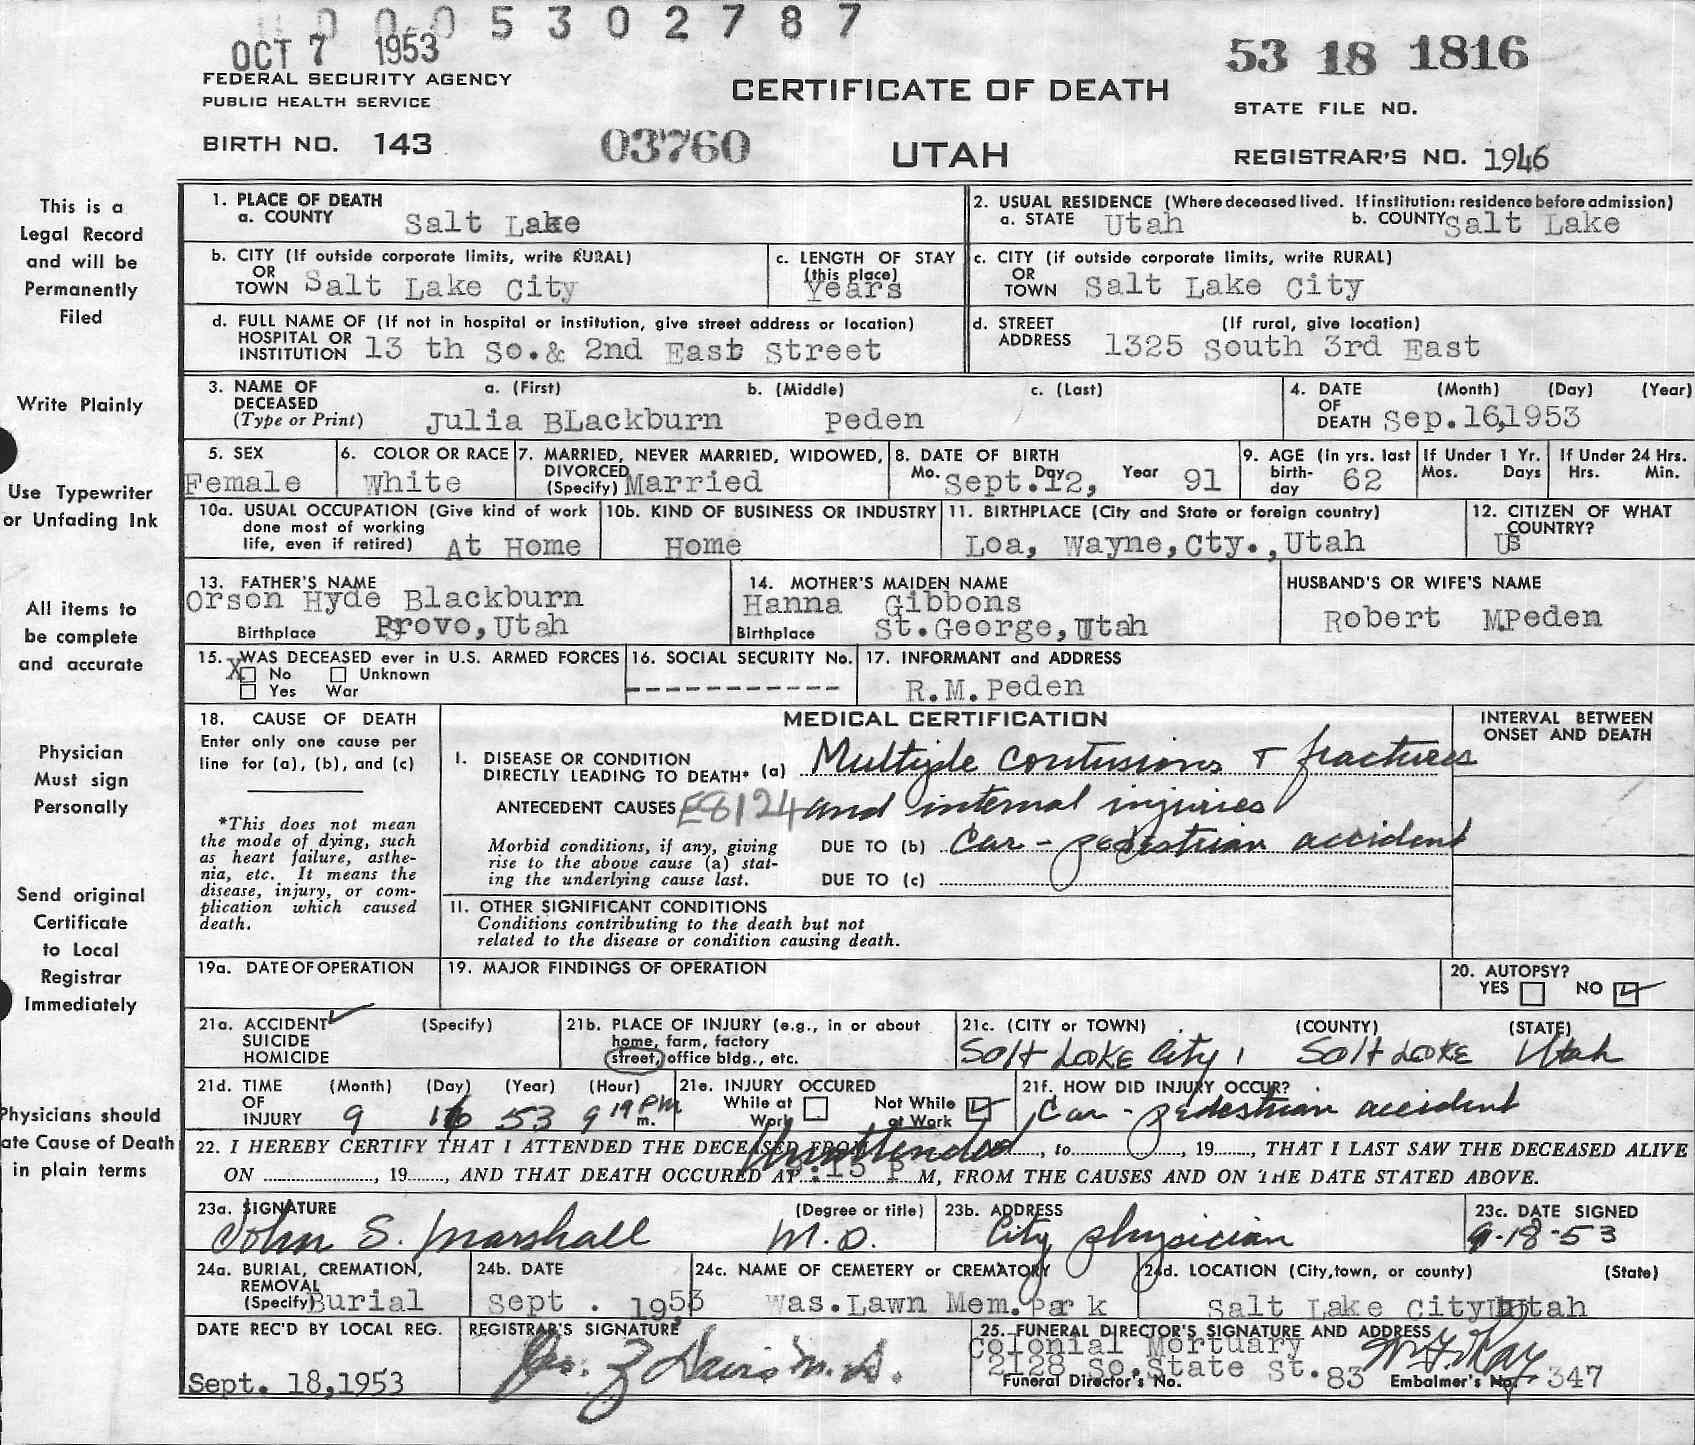 0005302787
OCT 7 1953
53 18 1816
FEDERAL SECURITY AGENCY
PUBLIC HEALTH SERVICE
CERTIFICATE OF DEATH
STATE FILE NO.
BIRTH NO. 143
03760
UTAH
REGISTRAR'S NO. 1946
This is a
Legal Record
and will be
Permanently
Filed
Write Plainly
Use Typewriter
or Unfading Ink
All items to
be complete
and accurate
Physician
Must sign
Personally
Send original
Certificate
to Local
Registrar
Immediately
Physicians should
ate Cause of Death
in plain terms
1. PLACE OF DEATH
a. COUNTY Salt Lake
2. USUAL RESIDENCE (Where deceased lived. If institution: residence before admission)
a. STATE Utah b. COUNTY Salt Lake
b. CITY (If outside corporate limits, write RURAL)
OR
TOWN Salt Lake City
c. LENGTH OF STAY
(this place)
Years
c. CITY (if outside corporate limits, write RURAL)
OR
TOWN Salt Lake City
d. FULL NAME OF (If not in hospital or institution, give street address or location)
HOSPITAL OR
INSTITUTION 13 th So.& 2nd East Street
d. STREET (If rural, give location)
ADDRESS 1325 South 3rd East
3. NAME OF a. (First) b. (Middle) c. (Last)
DECEASED
(Type or Print) Julia BLackburn Peden
4. DATE (Month) (Day) (Year)
OF
DEATH Sep.16,1953
5. SEX
Female
6. COLOR OR RACE
White
7. MARRIED, NEVER MARRIED, WIDOWED,
DIVORCED
(Specify) Married
8. DATE OF BIRTH
Mo. Day Year
Sept.12, 91
9. AGE (in yrs. last
birth-
day 62
If Under 1 Yr.
Mos. Days
If Under 24 Hrs.
Hrs. Min.
10a. USUAL OCCUPATION (Give kind of work
done most of working
life, even if retired) At Home
10b. KIND OF BUSINESS OR INDUSTRY
Home
11. BIRTHPLACE (City and State or foreign country)
Loa, Wayne,Cty.,Utah
12. CITIZEN OF WHAT
COUNTRY?
US
13. FATHER'S NAME
Orson Hyde Blackburn
Birthplace Provo,Utah
14. MOTHER'S MAIDEN NAME
Hanna Gibbons
Birthplace St.George,Utah
HUSBAND'S OR WIFE'S NAME
Robert M.Peden
15. WAS DECEASED ever in U.S. ARMED FORCES
X No Unknown
Yes War
16. SOCIAL SECURITY No.
-------------
17. INFORMANT and ADDRESS
R.M.Peden
18. CAUSE OF DEATH
Enter only one cause per
line for (a), (b), and (c)
*This does not mean
the mode of dying, such
as heart failure, asthe-
nia, etc. It means the
disease, injury, or com-
plication which caused
death.
MEDICAL CERTIFICATION
INTERVAL BETWEEN
ONSET AND DEATH
I. DISEASE OR CONDITION
DIRECTLY LEADING TO DEATH* (a) Multiple contusions & fractures
ANTECEDENT CAUSES E8124 and internal injuries
Morbid conditions, if any, giving
rise to the above cause (a) stat-
ing the underlying cause last.
DUE TO (b) Car - pedestrian accident
DUE TO (c)
11. OTHER SIGNIFICANT CONDITIONS
Conditions contributing to the death but not
related to the disease or condition causing death.
19a. DATE OF OPERATION
19. MAJOR FINDINGS OF OPERATION
20. AUTOPSY?
YES NO
21a. ACCIDENT (Specify)
SUICIDE
HOMICIDE
21b. PLACE OF INJURY (e.g., in or about
home, farm, factory
street, office bldg., etc.
21c. (CITY or TOWN) (COUNTY) (STATE)
Salt Lake City, Salt Lake Utah
21d. TIME (Month) (Day) (Year) (Hour)
OF
INJURY 9 16 53 9 19 PM m.
21e. INJURY OCCURED
While at Not While
Work at Work
21f. HOW DID INJURY OCCUR?
Car - pedestrian accident
22. I HEREBY CERTIFY THAT I ATTENDED THE DECEASED FROM Unattended, to, 19, THAT I LAST SAW THE DECEASED ALIVE
ON, 19, AND THAT DEATH OCCURED AT :15 P M, FROM THE CAUSES AND ON THE DATE STATED ABOVE.
23a. SIGNATURE (Degree or title)
John S. Marshall M.D.
23b. ADDRESS
City physician
23c. DATE SIGNED
9-18-53
24a. BURIAL, CREMATION,
REMOVAL
(Specify) Burial
24b. DATE
Sept . 1953
24c. NAME OF CEMETERY or CREMATORY
Was.Lawn Mem.Park
24d. LOCATION (City, town, or county) (State)
Salt Lake City Utah
DATE REC'D BY LOCAL REG.
Sept. 18,1953
REGISTRAR'S SIGNATURE
25. FUNERAL DIRECTOR'S SIGNATURE AND ADDRESS
Colonial Mortuary
2128 So.State St.
Funeral Director's No. 83 Embalmer's No. 347